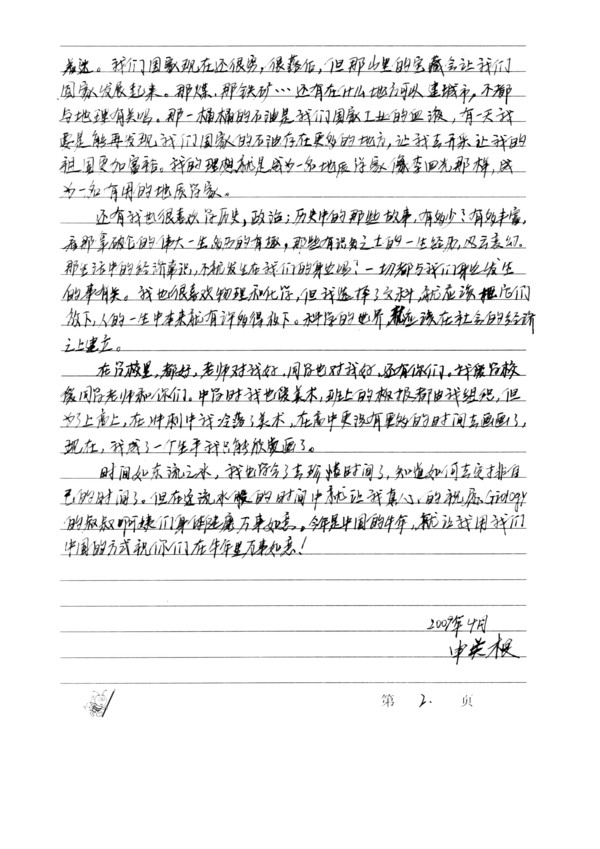 发达。我们国家现在还很穷，很落后，但那山里的宝藏会让我们
国家发展起来。那煤、那铁矿…还有在什么地方可以建城市，不都
与地理有关吗。那一桶桶的石油是我们国家工业的血液，有一天我
要是能再发现我们国家的石油存在更多的地方，让我去开采让我的
祖国更加富裕。我的理想就是成为一名地质学家像李四光那样，成
为一名有用的地质学家。
还有我也很喜欢学历史，政治；历史中的那些故事，有多少？有多丰富，
看那拿破仑的伟大一生多的有趣，那些有识之士的一生经历，风云变幻。
那生活中的经济常识，不就发生在我们的身边吗？一切都与我们身边发生
的事有关。我也很喜欢物理和化学，但我选择了文科，就应该把它们
放下，人的一生中本来就有许多得放下。科学的世界就应该在社会的经济
之上建立。
在学校里，都好，老师对我好，同学也对我好，还有你们。我很
同学老师和你们。中学时我也爱美术，班上的板报都由我组织，但
为了上高上，在冲刺中我冷落了美术，在高中更没有更多的时间去画画了，
现在，我成了一个生手我只能欣赏画了。
时间如东流之水，我也学会了去珍惜时间了，知道如何去安排自
己的时间了。但在这流水般的时间中就让我真心的祝愿
的叔叔阿姨们身体健康万事如意。今年是中国的牛年，就让我用我们
中国的方式祝你们在牛年里万事如意！
2009年4月
申英根
第 2. 页